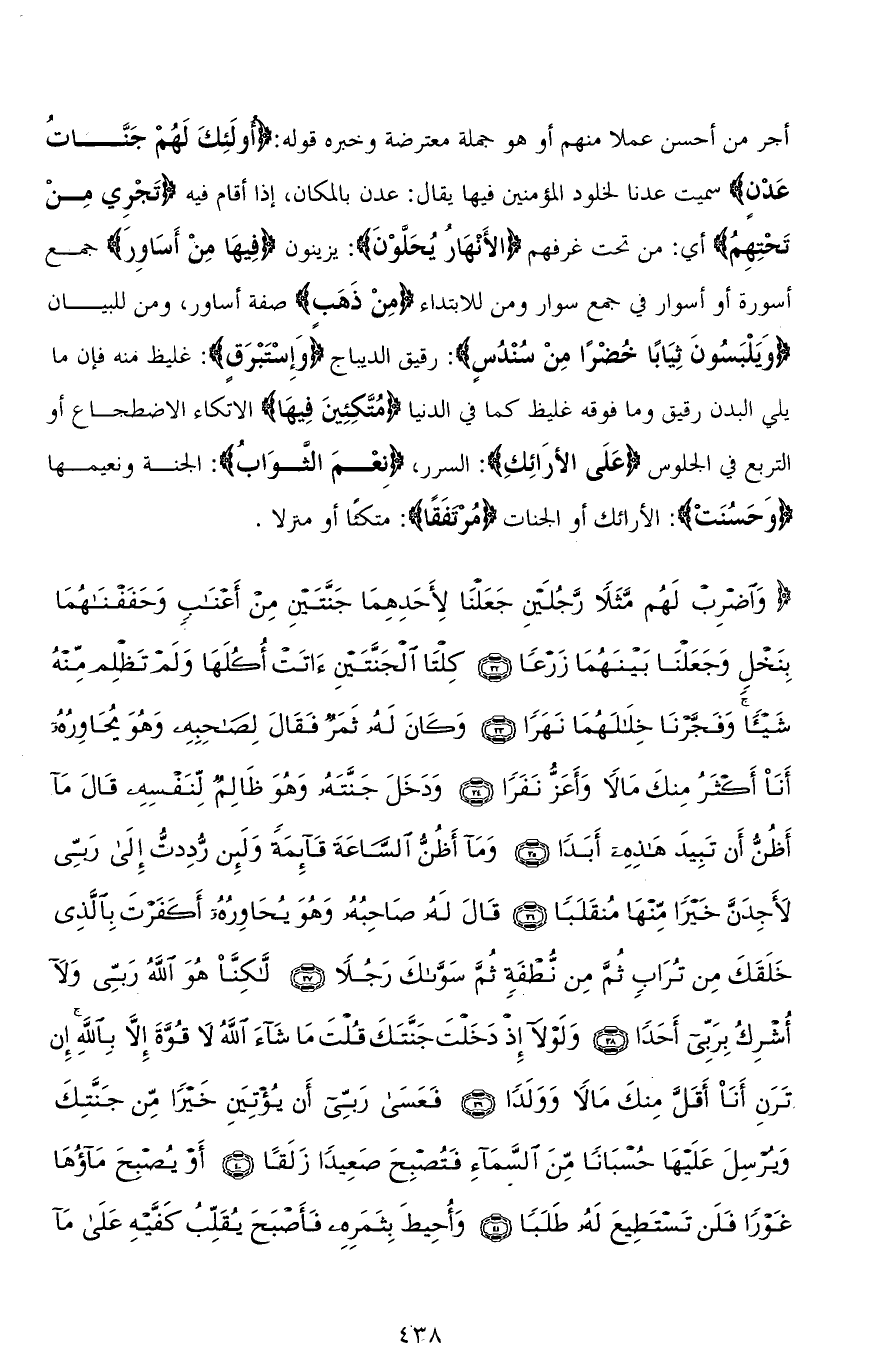 أجر من أحسن عملا منهم أو هو جملة معترضة وخبره قوله: ﴿أُولَئِكَ لَهُمْ جَنَّــــاتُ
عَدْنٍ﴾ سميت عدنا لخلود المؤمنين فيها يقال: عدن بالمكان، إذا أقام فيه ﴿تَجْرِي مِــنْ
تَحْتِهِمُ﴾ أي: من تحت غرفهم ﴿الأَنْهَارُ يُحَلَّوْنَ﴾: يزينون ﴿فِيهَا مِنْ أَسَاوِرَ﴾ جمــع
أسورة أو أسوار في جمع سوار ومن للابتداء ﴿مِنْ ذَهَبٍ﴾ صفة أساور، ومن للبيــــان
﴿وَيَلْبَسُونَ ثِيَابًا خُضْرًا مِنْ سُنْدُسٍ﴾: رقيق الديباج ﴿وَإِسْتَبْرَقٍ﴾: غليظ منه فإن ما
يلي البدن رقيق وما فوقه غليظ كما في الدنيا ﴿مُتَّكِئِينَ فِيهَا﴾ الاتكاء الاضطجــاع أو
التربع في الجلوس ﴿عَلَى الأَرَائِكِ﴾: السرر، ﴿نِعْــمَ الثَّــوَابُ﴾: الجنــة ونعيمــها
﴿وَحَسُنَتْ﴾: الأرائك أو الجنات ﴿مُرْتَفَقًا﴾: متكئًا أو منزلا .
﴿ وَٱضْرِبْ لَهُم مَّثَلًا رَّجُلَيْنِ جَعَلْنَا لِأَحَدِهِمَا جَنَّتَيْنِ مِنْ أَعْنَٰبٍ وَحَفَفْنَٰهُمَا
بِنَخْلٍ وَجَعَلْنَا بَيْنَهُمَا زَرْعًا ٣٢ كِلْتَا ٱلْجَنَّتَيْنِ ءَاتَتْ أُكُلَهَا وَلَمْ تَظْلِم مِّنْهُ
شَيْـًٔا ۚ وَفَجَّرْنَا خِلَٰلَهُمَا نَهَرًا ٣٣ وَكَانَ لَهُۥ ثَمَرٌ فَقَالَ لِصَٰحِبِهِۦ وَهُوَ يُحَاوِرُهُۥٓ
أَنَا۠ أَكْثَرُ مِنكَ مَالًا وَأَعَزُّ نَفَرًا ٣٤ وَدَخَلَ جَنَّتَهُۥ وَهُوَ ظَالِمٌ لِّنَفْسِهِۦ قَالَ مَآ
أَظُنُّ أَن تَبِيدَ هَٰذِهِۦٓ أَبَدًا ٣٥ وَمَآ أَظُنُّ ٱلسَّاعَةَ قَآئِمَةً وَلَئِن رُّدِدتُّ إِلَىٰ رَبِّى
لَأَجِدَنَّ خَيْرًا مِّنْهَا مُنقَلَبًا ٣٦ قَالَ لَهُۥ صَاحِبُهُۥ وَهُوَ يُحَاوِرُهُۥٓ أَكَفَرْتَ بِٱلَّذِى
خَلَقَكَ مِن تُرَابٍ ثُمَّ مِن نُّطْفَةٍ ثُمَّ سَوَّىٰكَ رَجُلًا ٣٧ لَّٰكِنَّا۠ هُوَ ٱللَّهُ رَبِّى وَلَآ
أُشْرِكُ بِرَبِّىٓ أَحَدًا ٣٨ وَلَوْلَآ إِذْ دَخَلْتَ جَنَّتَكَ قُلْتَ مَا شَآءَ ٱللَّهُ لَا قُوَّةَ إِلَّا بِٱللَّهِ ۚ إِن
تَرَنِ أَنَا۠ أَقَلَّ مِنكَ مَالًا وَوَلَدًا ٣٩ فَعَسَىٰ رَبِّىٓ أَن يُؤْتِيَنِ خَيْرًا مِّن جَنَّتِكَ
وَيُرْسِلَ عَلَيْهَا حُسْبَانًا مِّنَ ٱلسَّمَآءِ فَتُصْبِحَ صَعِيدًا زَلَقًا ٤٠ أَوْ يُصْبِحَ مَآؤُهَا
غَوْرًا فَلَن تَسْتَطِيعَ لَهُۥ طَلَبًا ٤١ وَأُحِيطَ بِثَمَرِهِۦ فَأَصْبَحَ يُقَلِّبُ كَفَّيْهِ عَلَىٰ مَآ
٤٣٨